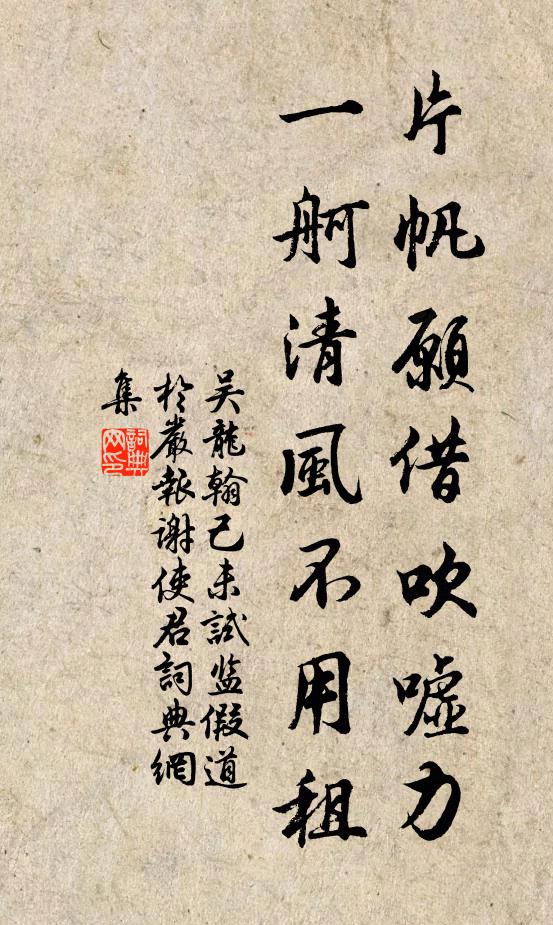 片帆願借吹噓力
一舸清風不用租
吴龍翰己未試监假道
於嚴報謝使君詞典網
集
詞典
网印